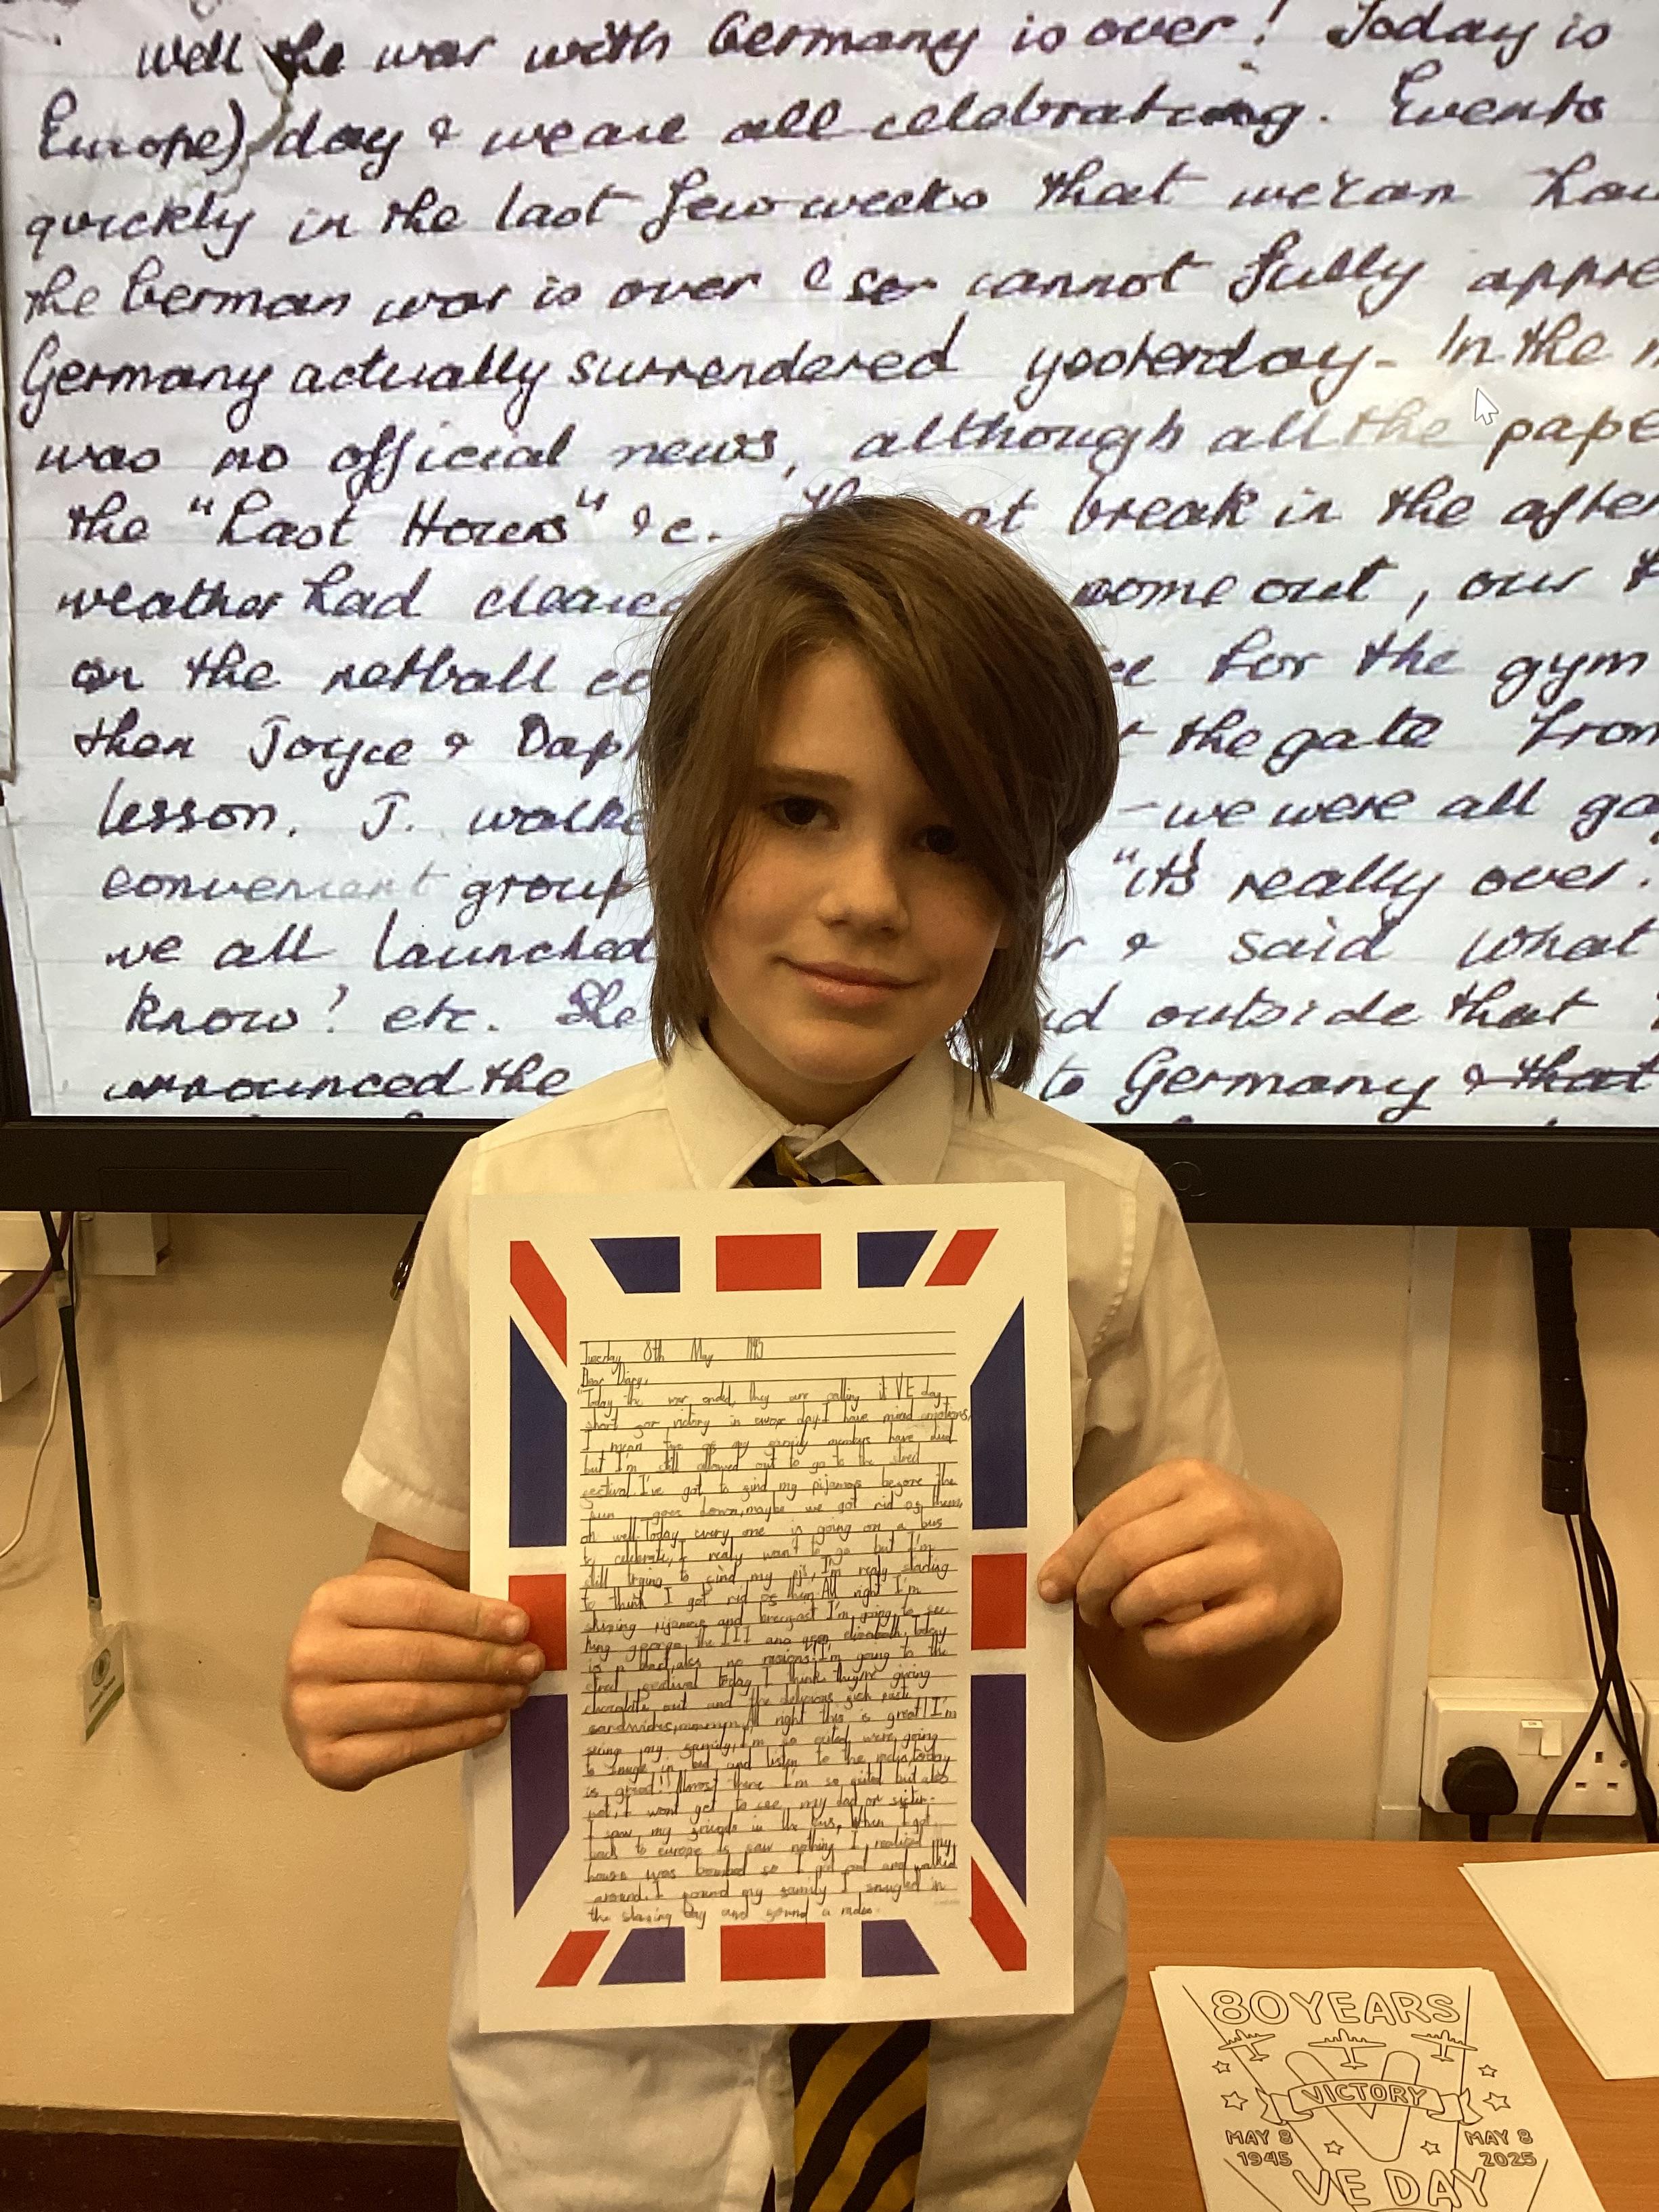 Well the war with Germany is over! Today is
Europe) day & we are all celebrating. Events
quickly in the last few weeks that we can
the German war is over & so cannot fully appre
Germany actually surrendered yesterday - In the
was no official news, although all the pape
the "Last Hours" &c. at break in the after
weather had cleared come out, our
on the netball co for the gym
then Joyce & Daph the gate from
lesson. J. walke - we were all go
convenient group "it's really over."
we all launched & said what
know? etc. She outside that
announced the to Germany & that
Tuesday 8th May
Dear Diary,
"Today the war ended, they are calling it VE day
short for victory in europe day. I have mixed emotions,
I mean two of my family members have died
but I'm still allowed out to go to the street
festival. I've got to find my pijamas before the
sun goes down, maybe we got rid of them,
oh well. Today every one is going on a bus
to celebrate, I realy want to go but I'm
still trying to find my pjs, I'm realy starting
to think I got rid of them. All right I'm
pijamas and I'm going to see
king george the III and elizabeth, today
is a no I'm going to the
street festival today I think they're giving
chocolate out and the delicious fish paste
sandwiches, All right this is great! I'm
seeing my family, I'm so exited, were going
to in bed and listen to the radio, today
is great!! Almost there I'm so exited but also
not, I wont get to see my dad or sister.
I saw my friends in the bus, When I got
back to europe is saw nothing I realised my
house was bombed so I got and walked
around. I found my family I snugled in
the and found a radio.
80 YEARS
VICTORY
MAY 8
1945
MAY 8
2025
VE DAY